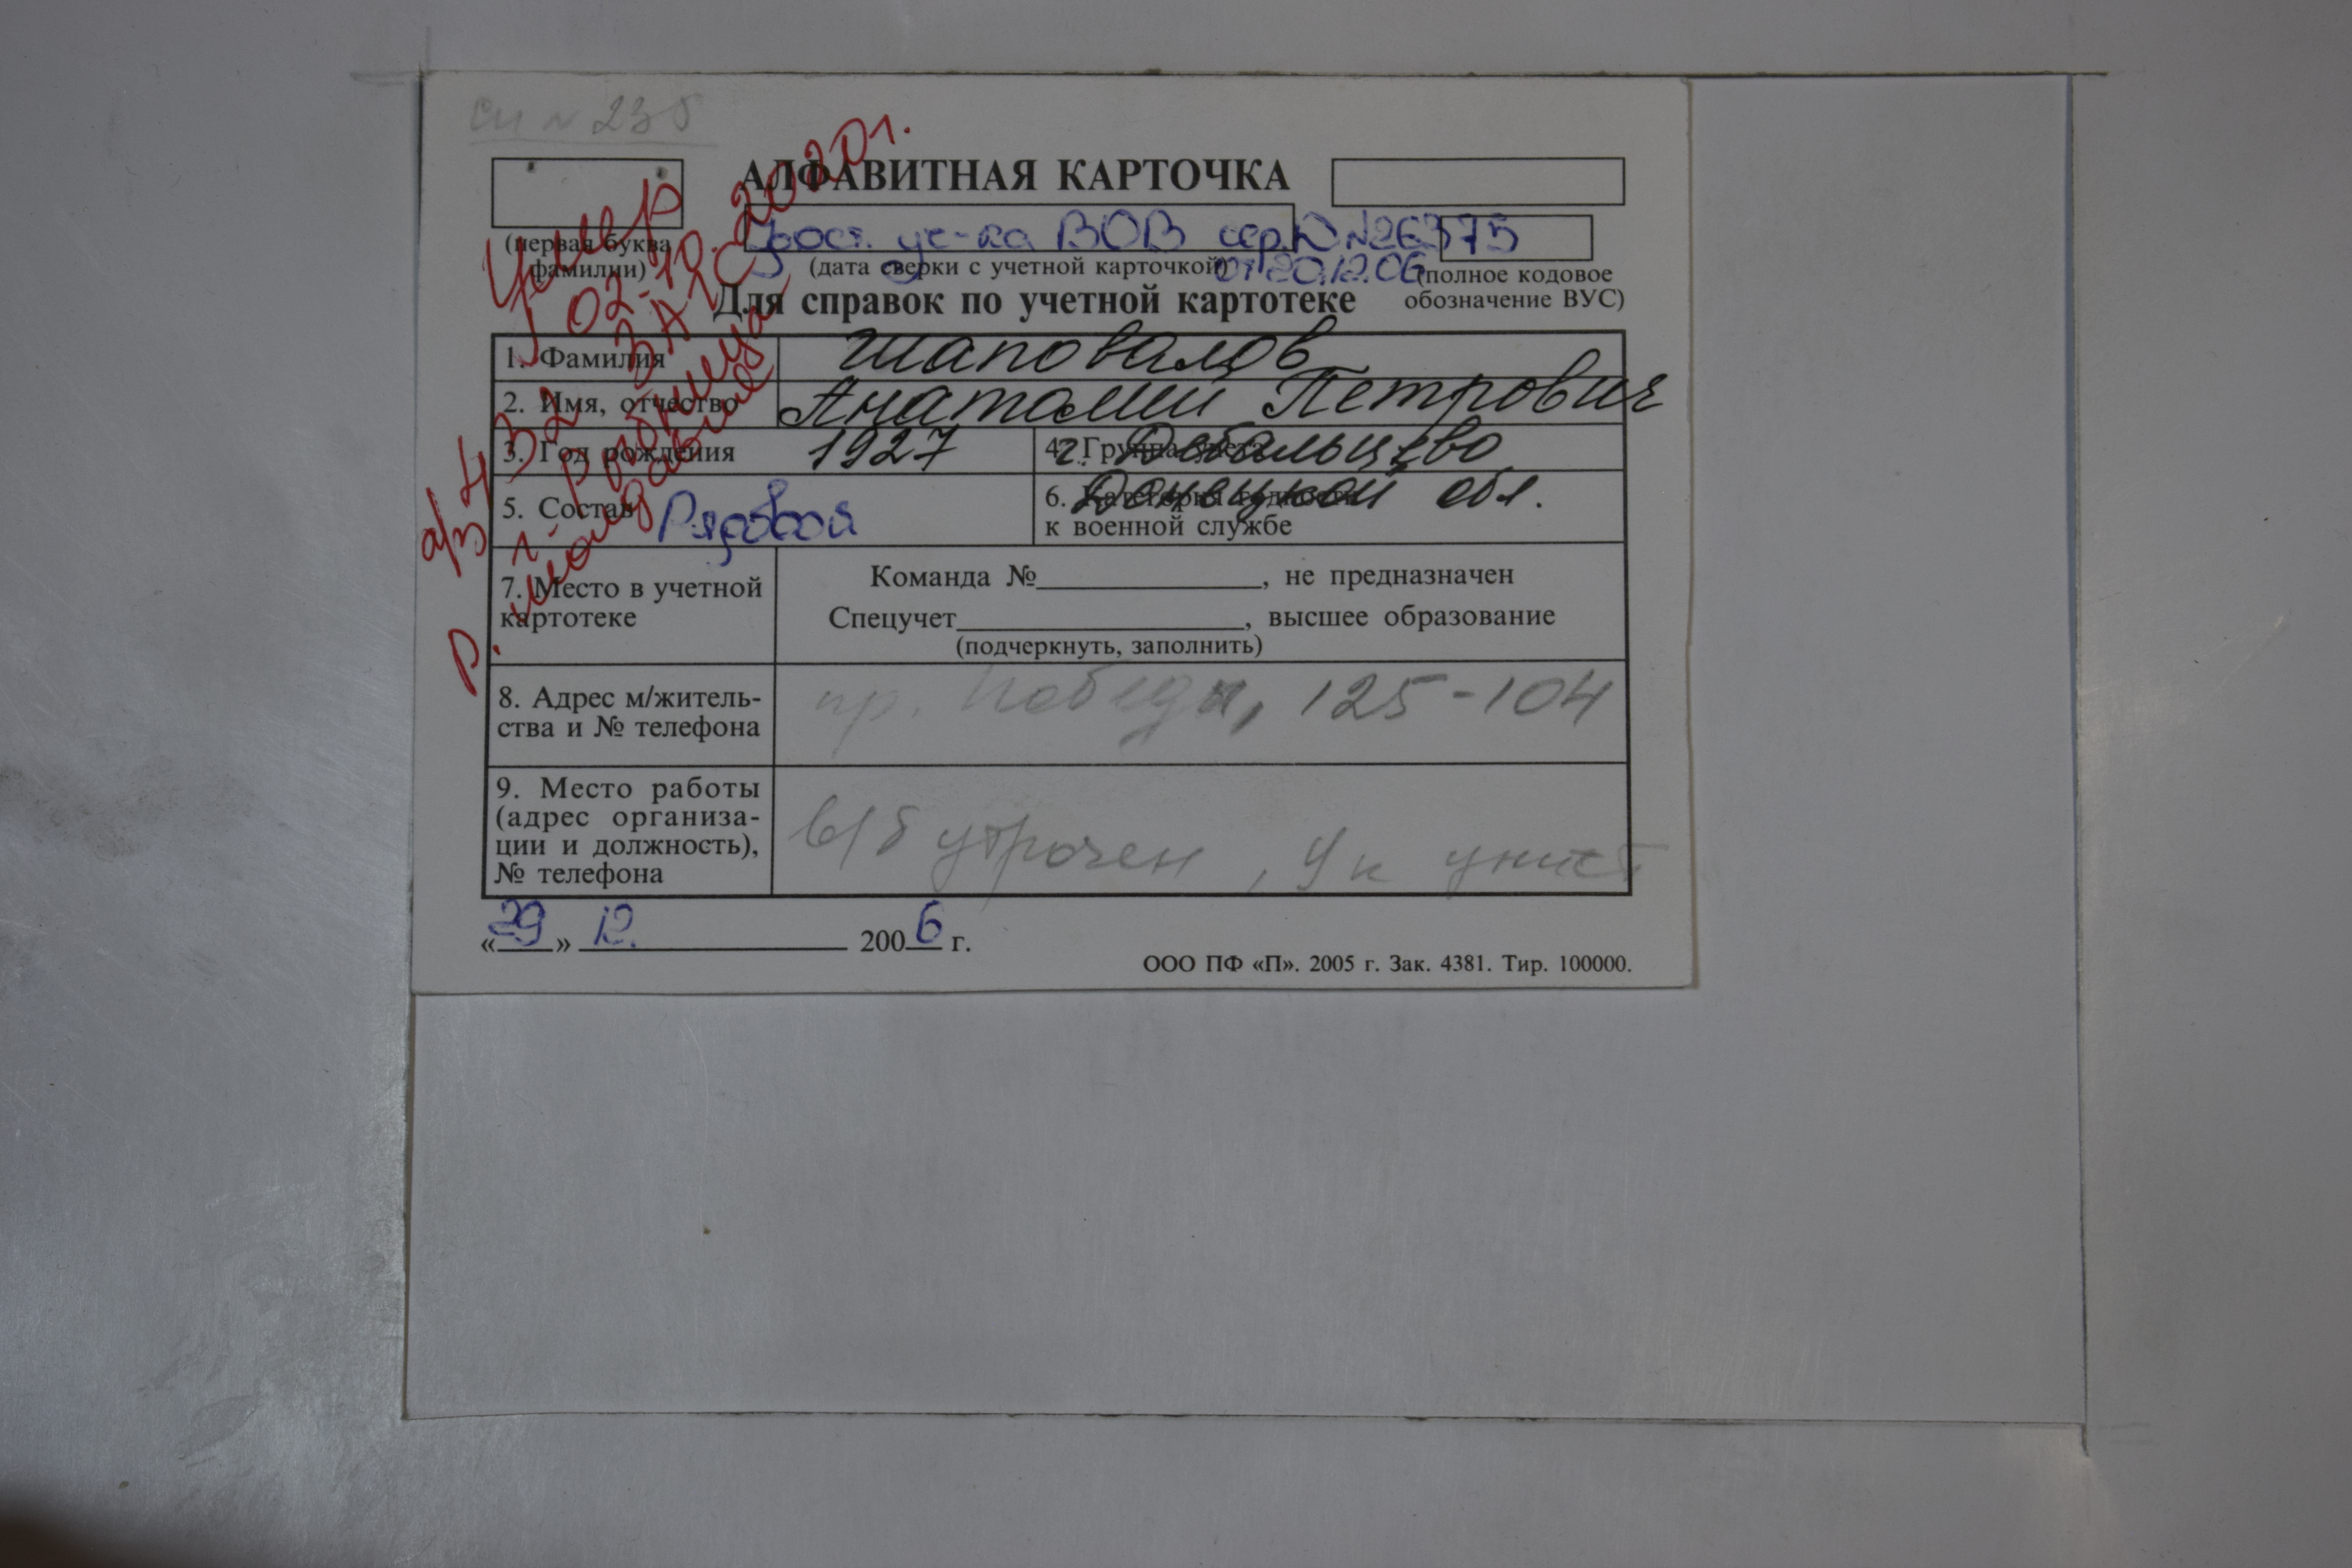 СП № 235
АЛФАВИТНАЯ КАРТОЧКА
(первая буква фамилии)
Удост. уч-ка ВОВ сер.Ю №26375
от 20.12.06
(дата сверки с учетной карточкой)
(полное кодовое обозначение ВУС)
Для справок по учетной картотеке
Умер
02.10.2020г.
а/з 432 ЗАГС
г. Рыбница
р. Молдавия
1. Фамилия Шаповалов
2. Имя, отчество Анатолий Петрович
3. Год рождения 1927
4. Группа учета г. Дебальцево
5. Состав Рядовой
6. Категория годности к военной службе Донецкой обл.
7. Место в учетной картотеке
Команда №, не предназначен
Спецучет, высшее образование
(подчеркнуть, заполнить)
8. Адрес м/житель-
ства и № телефона
пр. Победы, 125-104
9. Место работы
(адрес организа-
ции и должность),
№ телефона
в/б утрочен, Ук уничт
«29» 12. 2006 г.
ООО ПФ «П». 2005 г. Зак. 4381. Тир. 100000.